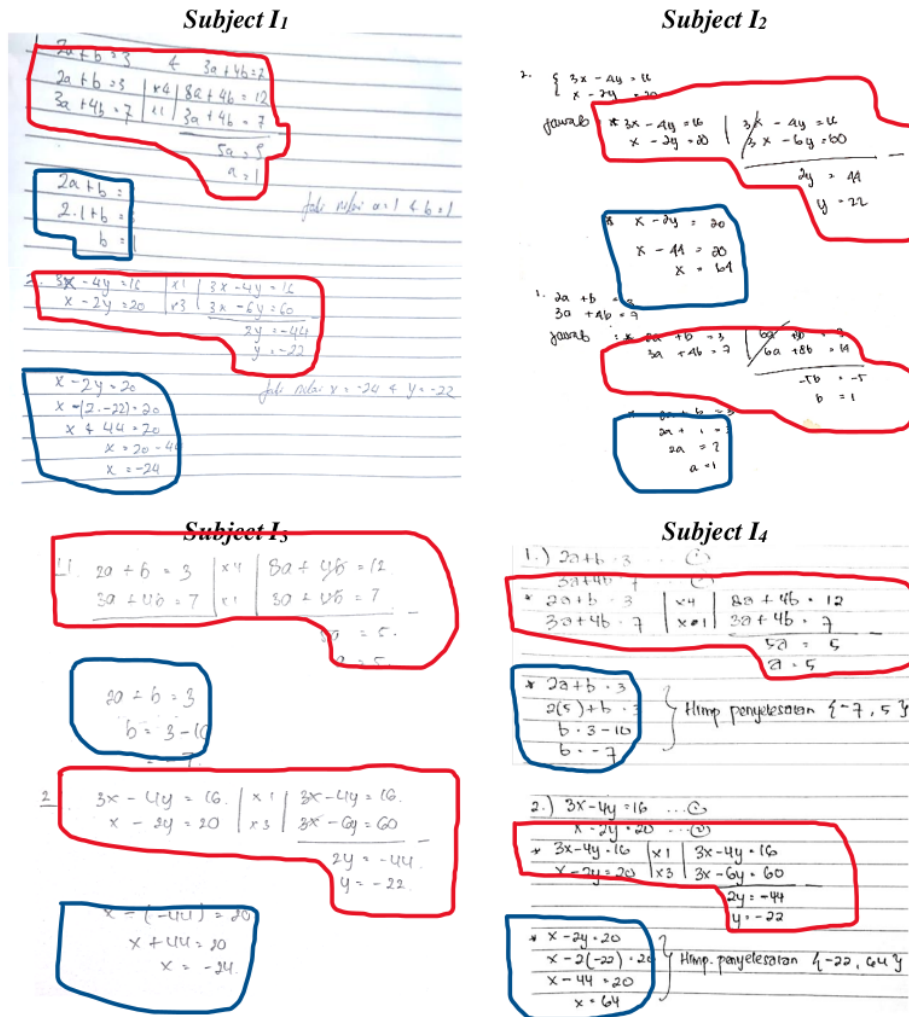 Subject I1
2a + b = 3 & 3a + 4b = 7
2a + b = 3 | x4 | 8a + 4b = 12
3a + 4b = 7 | x1 | 3a + 4b = 7
5a = 5
a = 1
2a + b =
2.1 + b =
b = 1
Jadi nilai a = 1 & b = 1
2. 3x - 4y = 16 | x1 | 3x - 4y = 16
x - 2y = 20 | x3 | 3x - 6y = 60
2y = -44
y = -22
x - 2y = 20
Jadi nilai x = -24 & y = -22
x - (2. -22) = 20
x + 44 = 20
x = 20 - 44
x = -24
Subject I2
2. { 3x - 4y = 16
x - 2y = 20
Jawab : * 3x - 4y = 16 | 3x - 4y = 16
x - 2y = 20 | 3x - 6y = 60 -
2y = 44
y = 22
* x - 2y = 20
x - 44 = 20
x = 64
1. 2a + b = 3
3a + 4b = 7
Jawab : * 2a + b = 3 |
3a + 4b = 7 | 6a + 8b = 14
-5b = -5
b = 1
2a + 1 =
2a = 2
a = 1
Subject I3
1. 2a + b = 3 | x4 | 8a + 4b = 12
3a + 4b = 7 | x1 | 3a + 4b = 7 -
5a = 5.
a = 5.
2a + b = 3
b = 3 - 10
= -7
2 3x - 4y = 16. | x1 | 3x - 4y = 16.
x - 2y = 20 | x3 | 3x - 6y = 60 -
2y = -44.
y = -22.
x - (-44) = 20
x + 44 = 20
x = -24.
Subject I4
1.) 2a + b = 3 ... (1)
3a + 4b = 7 ... (2)
* 2a + b = 3 | x4 | 8a + 4b = 12
3a + 4b = 7 | x1 | 3a + 4b = 7 -
5a = 5
a = 5
* 2a + b = 3
2(5) + b = 3
b = 3 - 10
b = -7
Himp penyelesaian {-7, 5}
2.) 3x - 4y = 16 ... (1)
x - 2y = 20 ... (2)
* 3x - 4y = 16 | x1 | 3x - 4y = 16
x - 2y = 20 | x3 | 3x - 6y = 60 -
2y = -44
y = -22
* x - 2y = 20
x - 2(-22) = 20
x - 44 = 20
x = 64
Himp. penyelesaian {-22, 64}